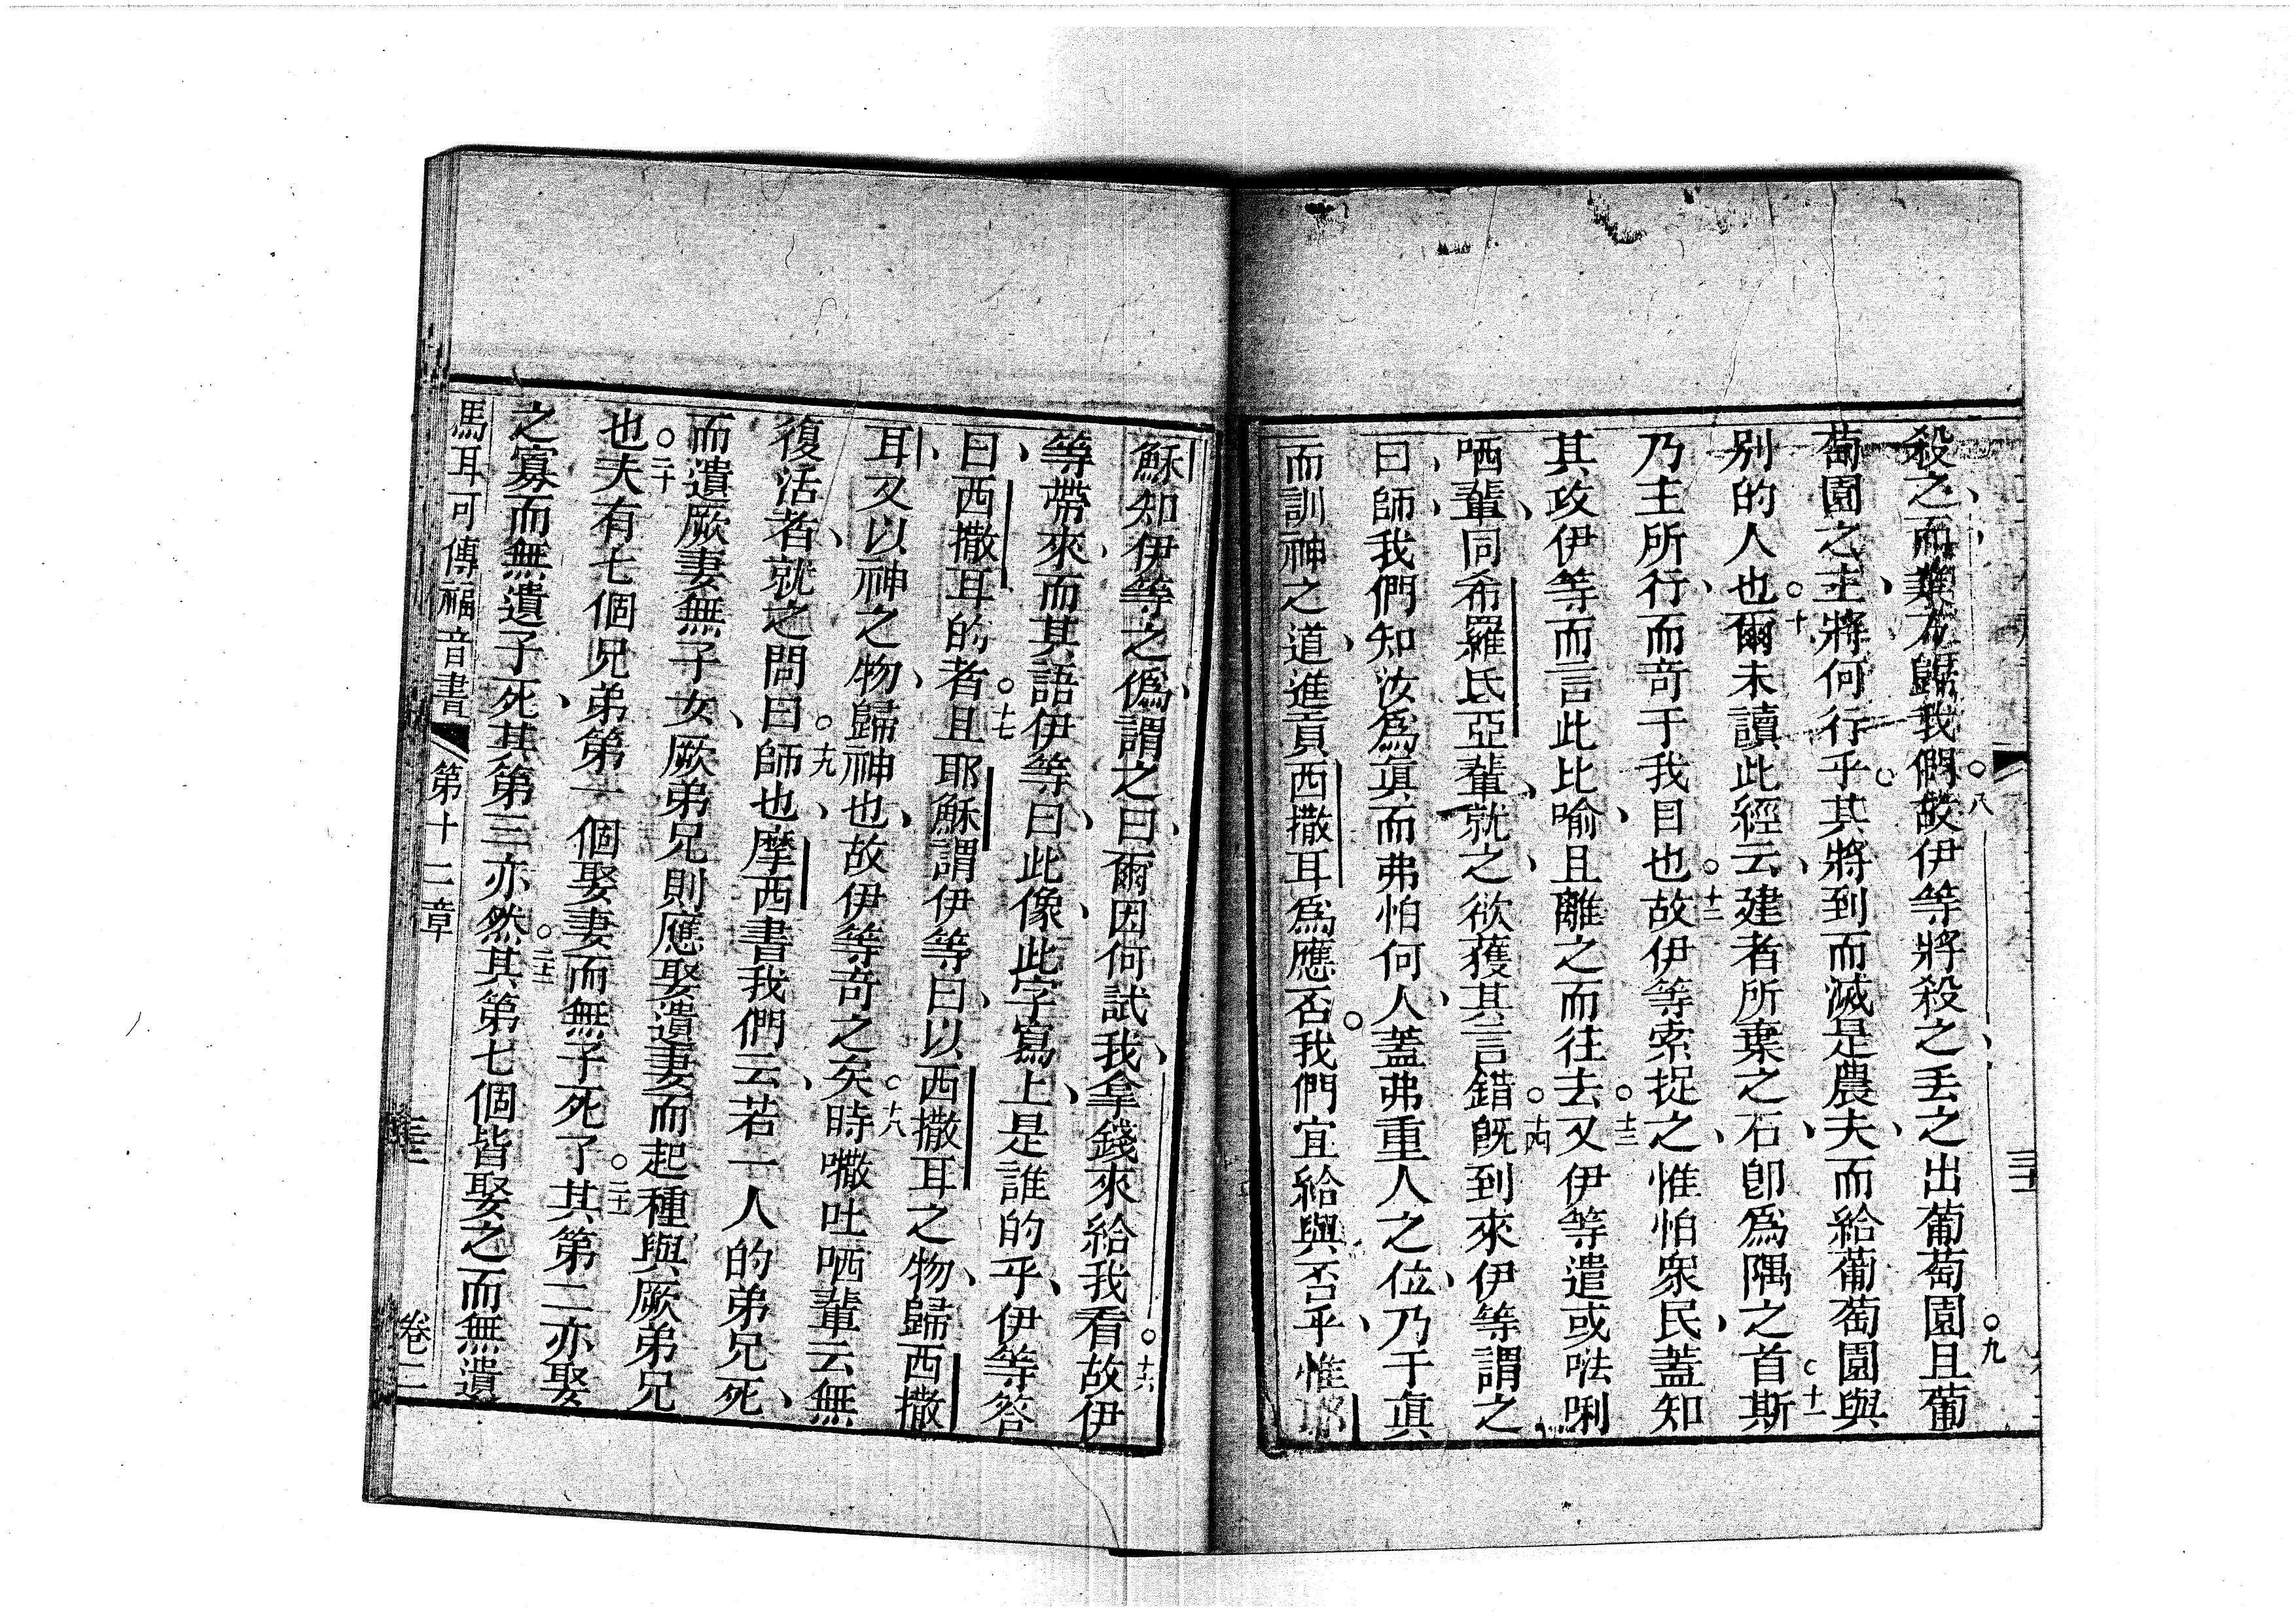 殺之而業方歸我們。八故伊等將殺之丢之出葡萄園。九且葡
萄園之主、將何行乎。其將到而滅是農夫、而給葡萄園與
别的人也。十爾未讀此經云、建者所棄之石、卽爲隅之首。十一斯
乃主所行、而竒于我目也。十二故伊等索捉之、惟怕衆民、蓋知
其攻伊等而言此比喻、且離之而往去。十三又伊等遣或𠵽唎
哂輩、同希羅氏亞輩、就之、欲獲其言錯。十四旣到來、伊等謂之
曰、師、我們知汝爲眞、而弗怕何人、蓋弗重人之位、乃于眞
而訓神之道、進貢西撒耳爲應否。我們宜給與否乎、惟耶
穌知伊等之僞、謂之曰、爾因何試我、拿錢來給我看。十六故伊
等帶來、而其語伊等、曰、此像、此字寫上、是誰的乎、伊等答
曰、西撒耳的者。十七且耶穌謂伊等曰、以西撒耳之物、歸西撒
耳、又以神之物、歸神也、故伊等竒之矣。十八時㘔吐哂輩云無
復活者、就之問曰。九師也、摩西書我們云、若一人的弟兄死、
而遺厥妻無子女、厥弟兄則應娶遺妻、而起種與厥弟兄
也。二十夫有七個兄弟、第一個娶妻而無子死了。二十一其第二亦娶
之寡而無遺子死、其第三亦然。二十二其第七個皆娶之而無遺
馬耳可傳福音書 第十二章 卷二